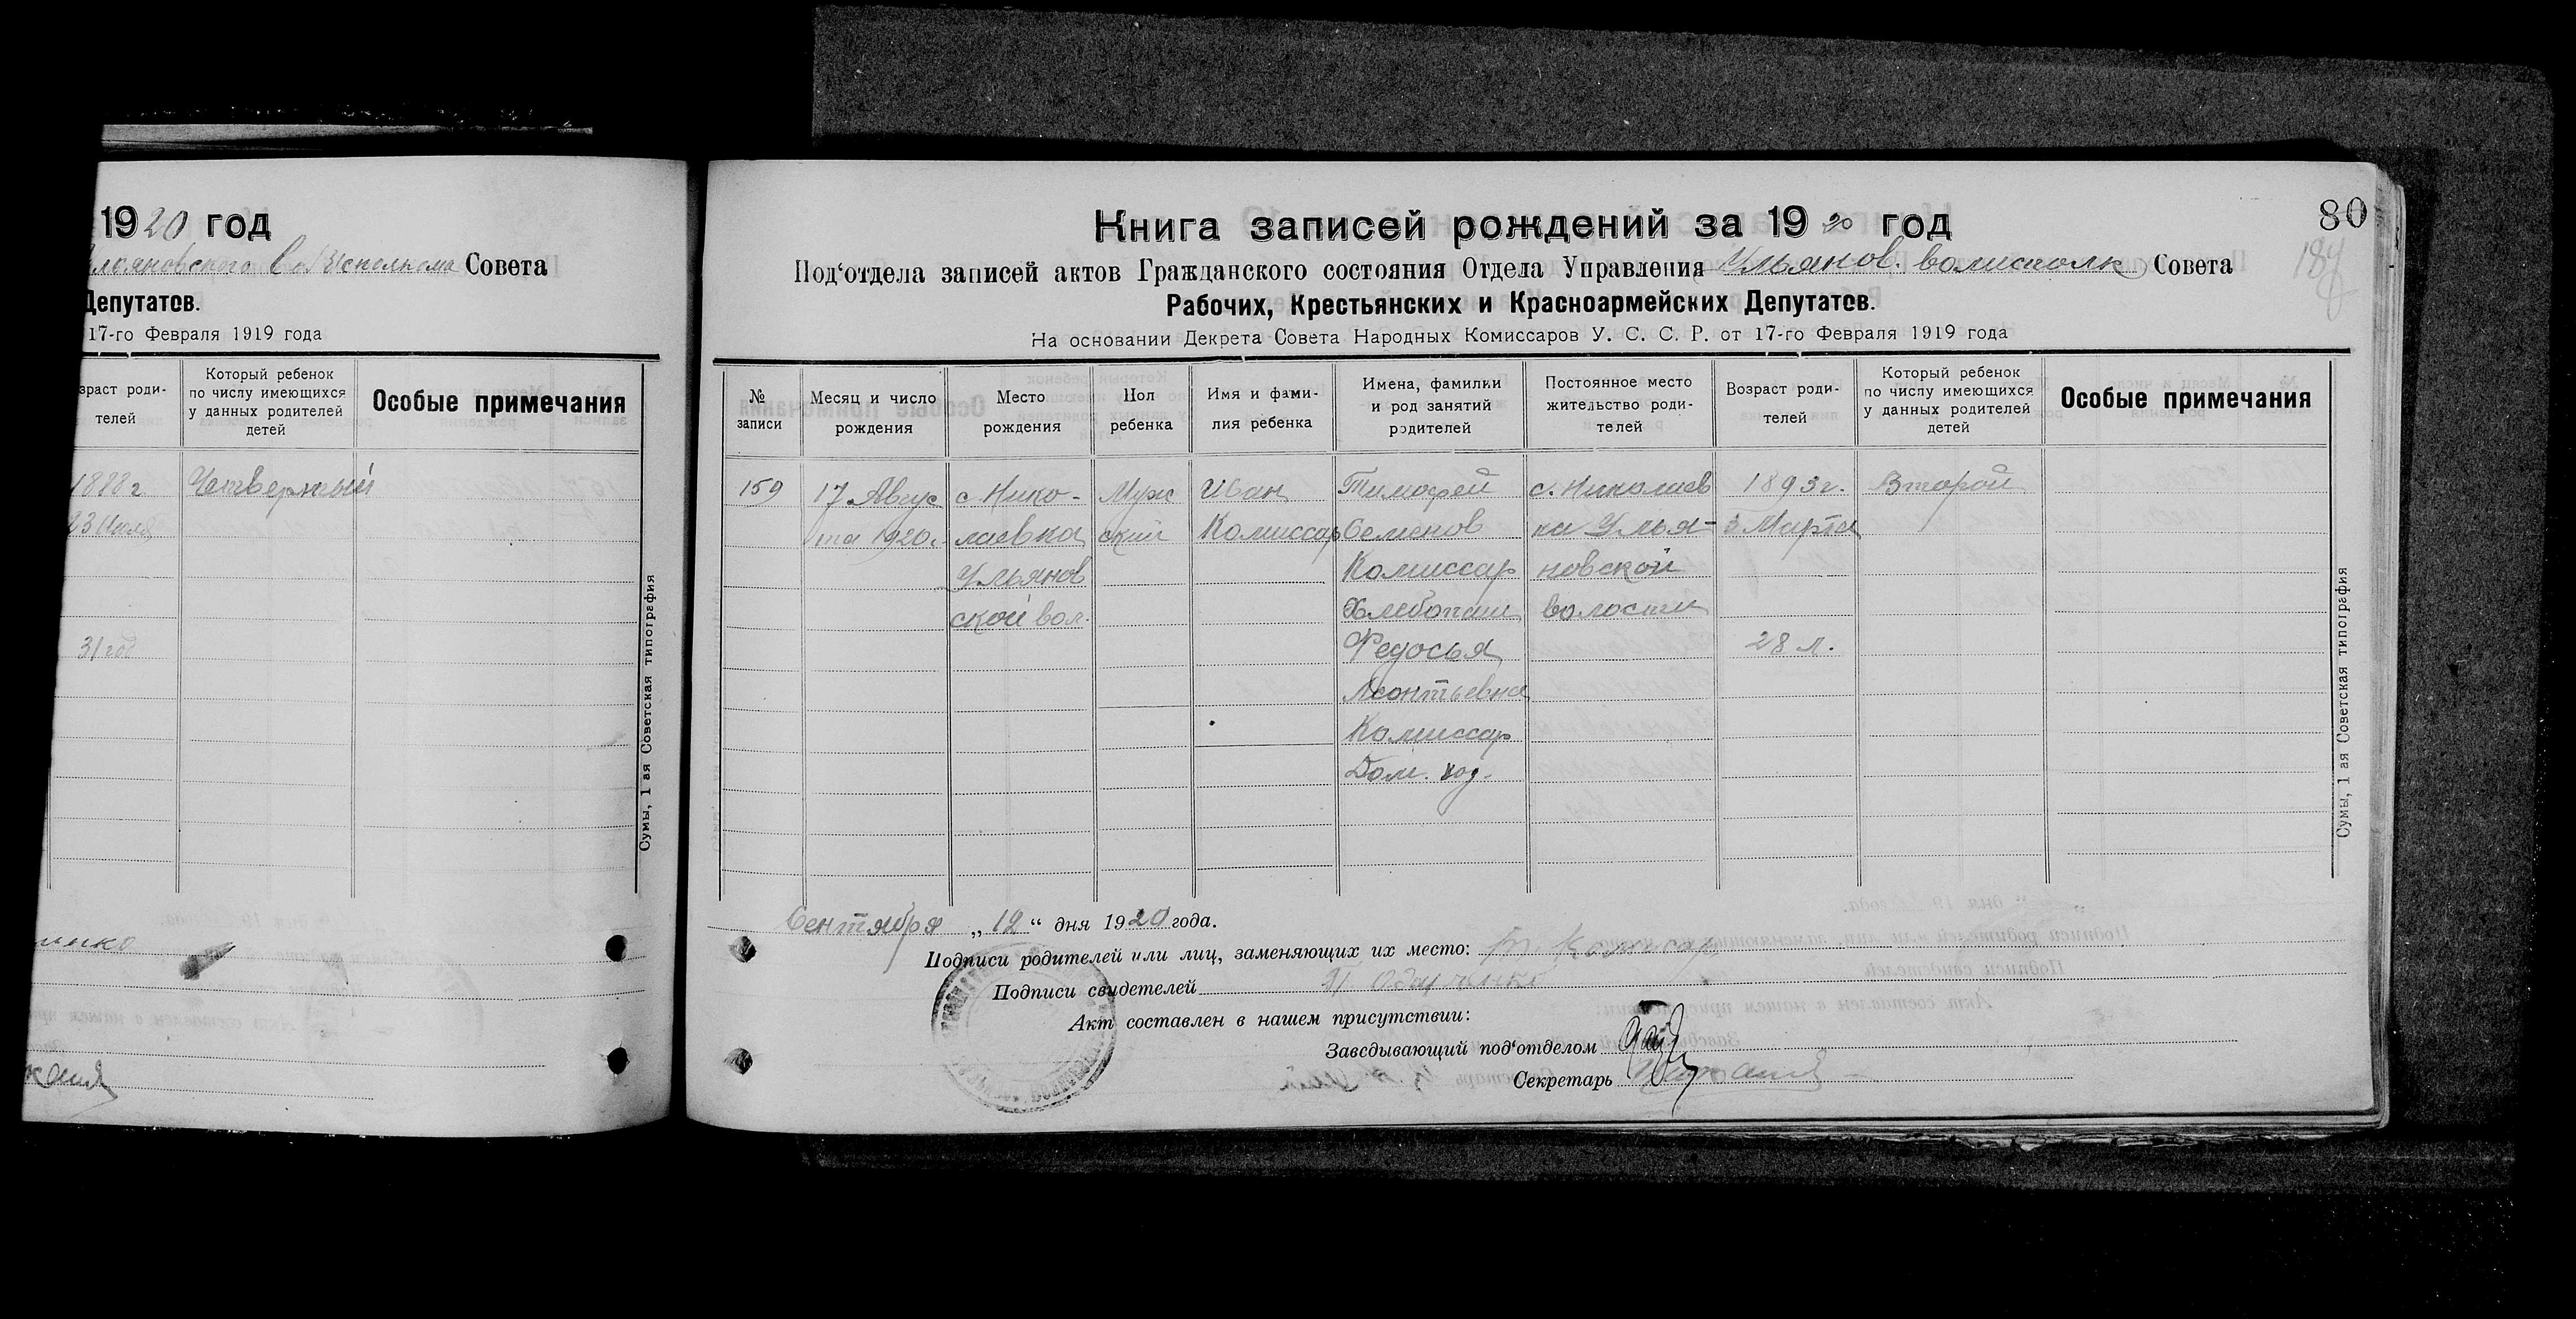 1920 год
Совета
Депутатов.
17-го Февраля 1919 года
зраст роди-
телей
Который ребенок
по числу имеющихся
у данных родителей
детей
Особые примечания
1888 г.
Четвертый
31 год
Сумы, 1 ая Советская типография
80
Книга записей рождений за 1920 год
Под'отдела записей актов Гражданского состояния Отдела Управления Ульянов. волисполк Совета
Рабочих, Крестьянских и Красноармейских Депутатов.
На основании Декрета Совета Народных Комиссаров У. С. С. Р. от 17-го Февраля 1919 года
№
записи
Месяц и число
рождения
Место
рождения
Пол
ребенка
Имя и фами-
лия ребенка
Имена, фамилии
и род занятий
родителей
Постоянное место
жительство роди-
телей
Возраст роди-
телей
Который ребенок
по числу имеющихся
у данных родителей
детей
Особые примечания
159 17 Авгус с Нико- Муж Иван Тимофей с. Николаев 1893 г. Второй
та 1920 г. лаевка ской Комиссар Семенов ка Улья- 3 Марта
Ульянов Комиссар новской
ской вол. Хлебопаш волости
Федосья 28 л.
Леонтьевна
Комиссар
Дом. хоз.
Сумы, 1 ая Советская типография
Сентября „12“ дня 1920 года.
Подписи родителей или лиц, заменяющих их место: Т. Комисар
Подписи свидетелей
Акт составлен в нашем присутствии:
Заведывающий под'отделом
Секретарь